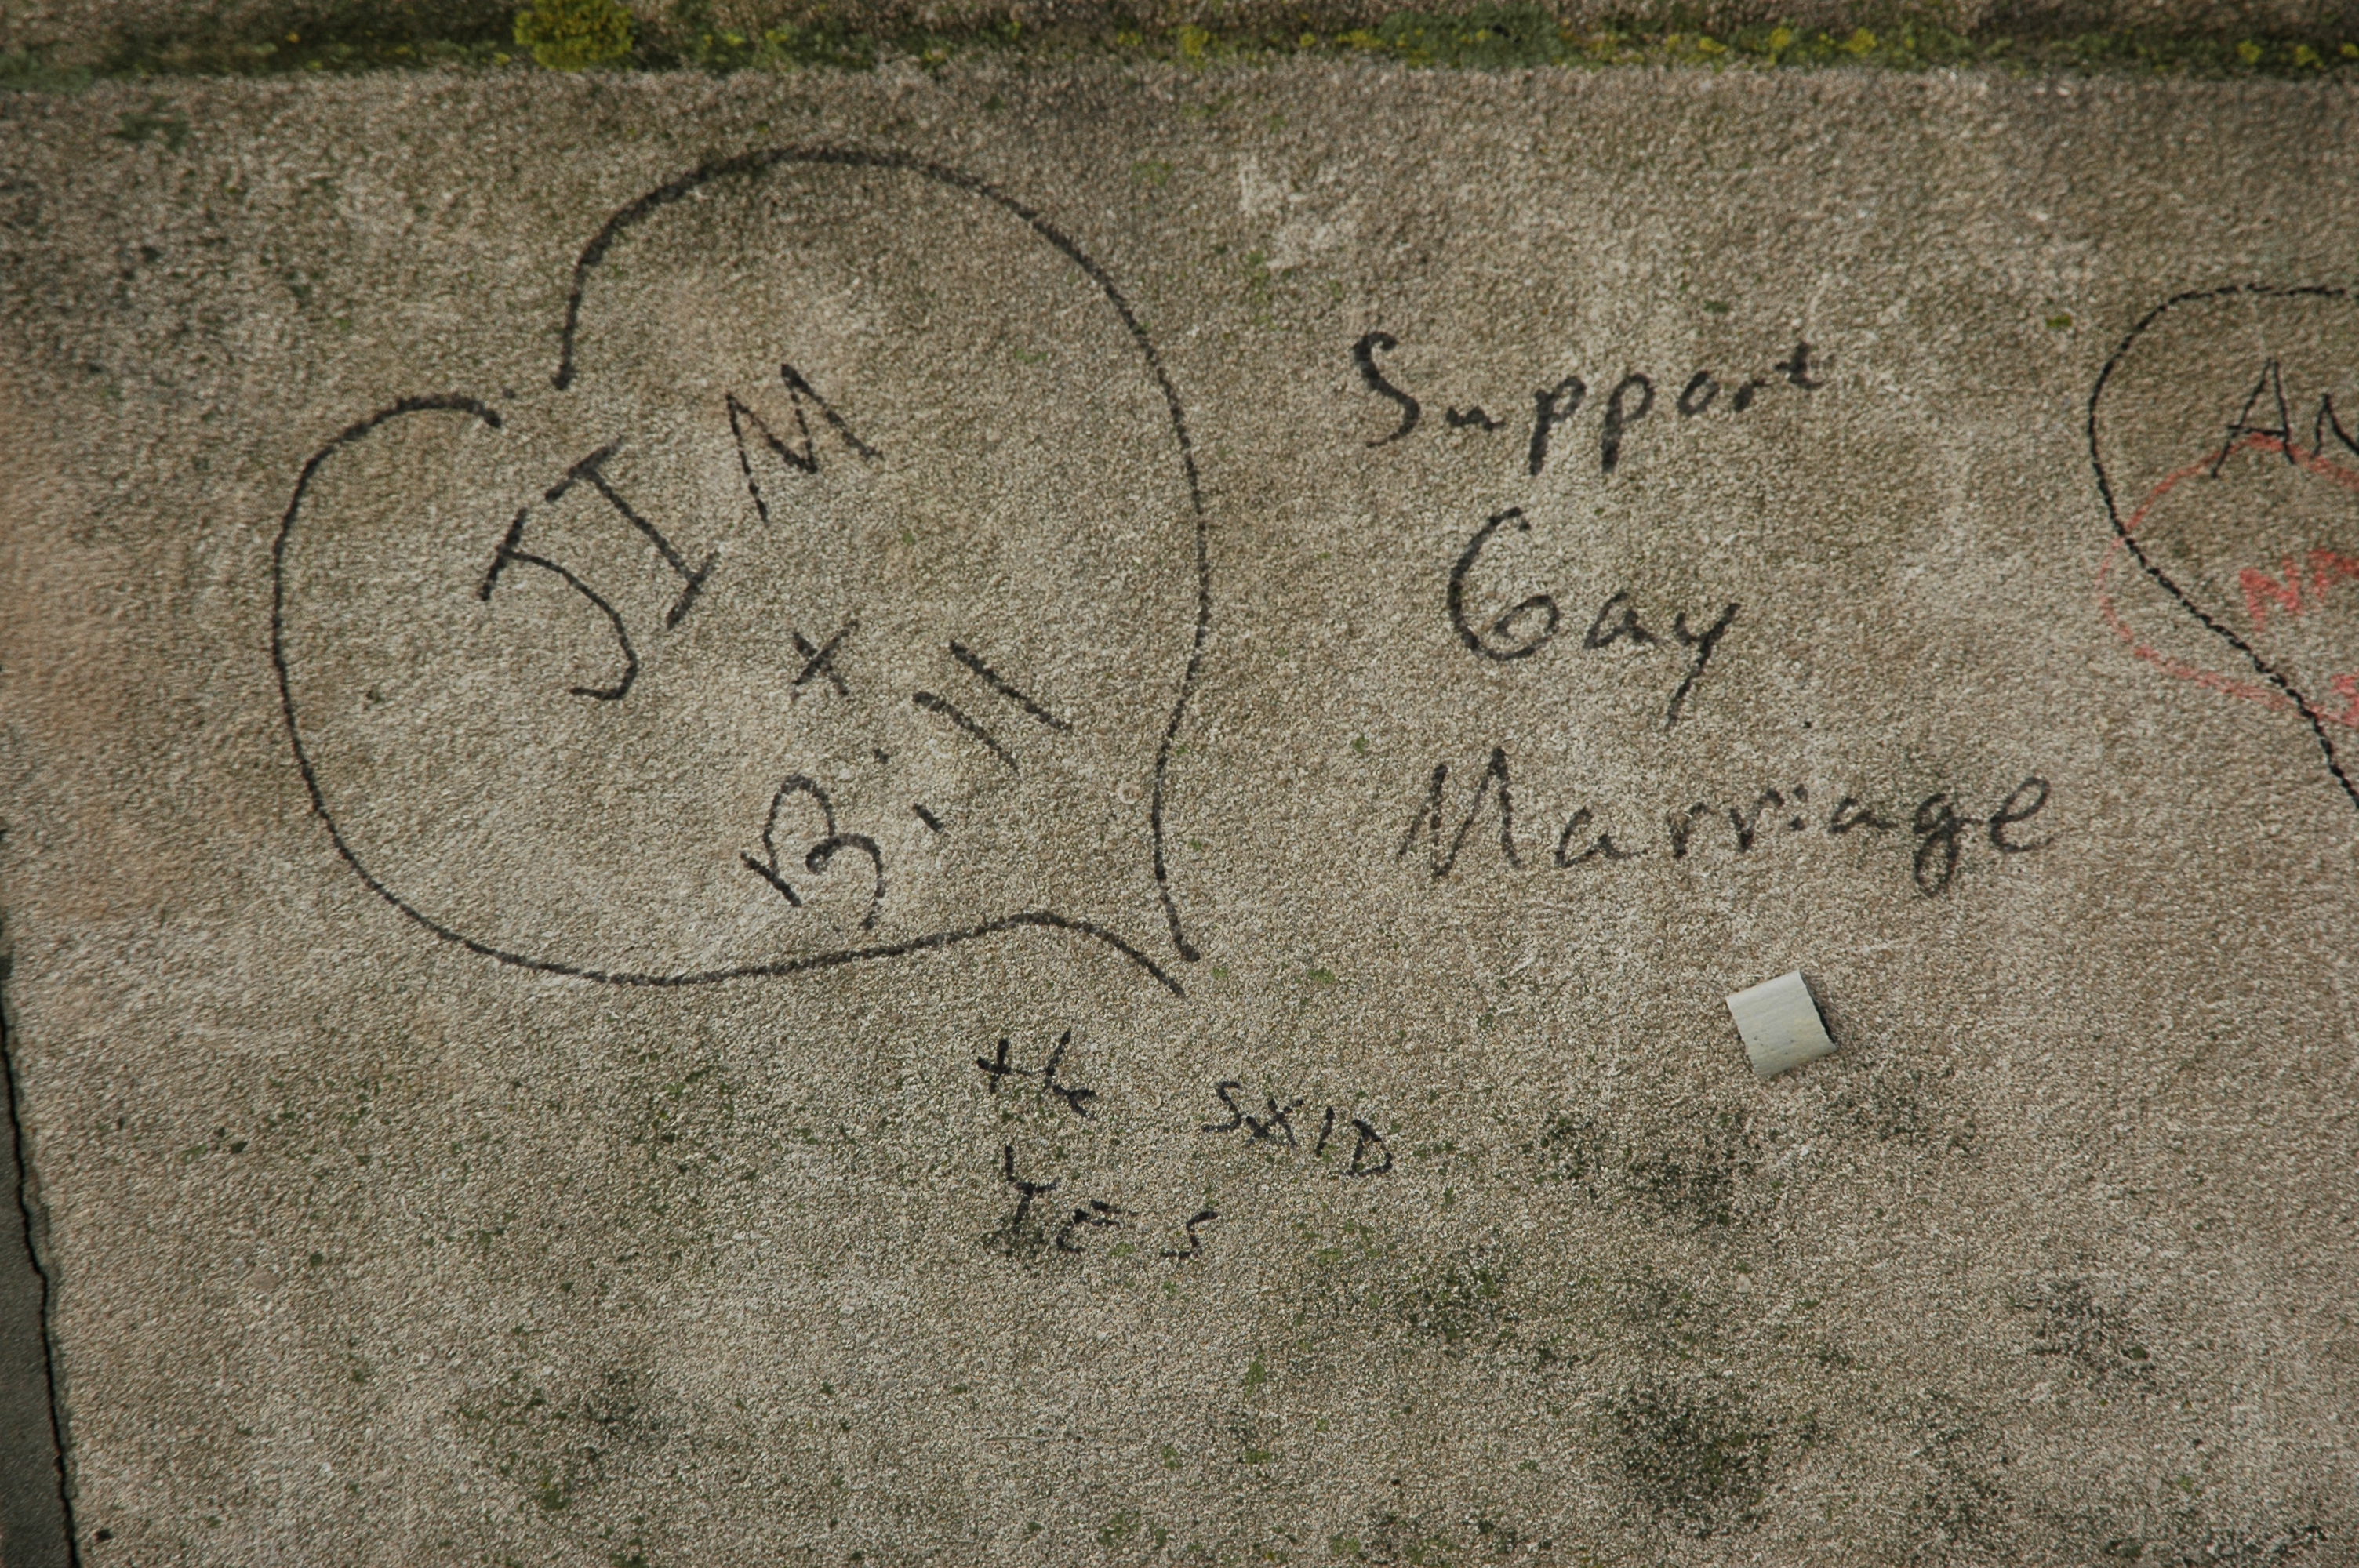 JIM
+
Bill
Support
Gay
Marriage
He SAID
YES
AN
NA